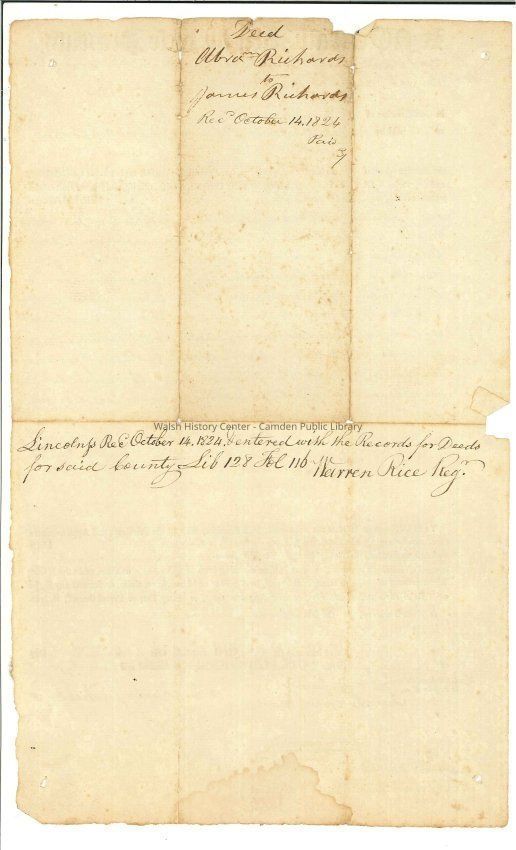 Deed
Abrᵐ Richards
to
James Richards
Recᵈ October 14. 1824
Paid
Walsh History Center - Camden Public Library
Lincoln ss Recᵈ October 14. 1824, & entered with the Records for Deeds
for said County Lib 128 Fol 116 Warren Rice Regʳ.